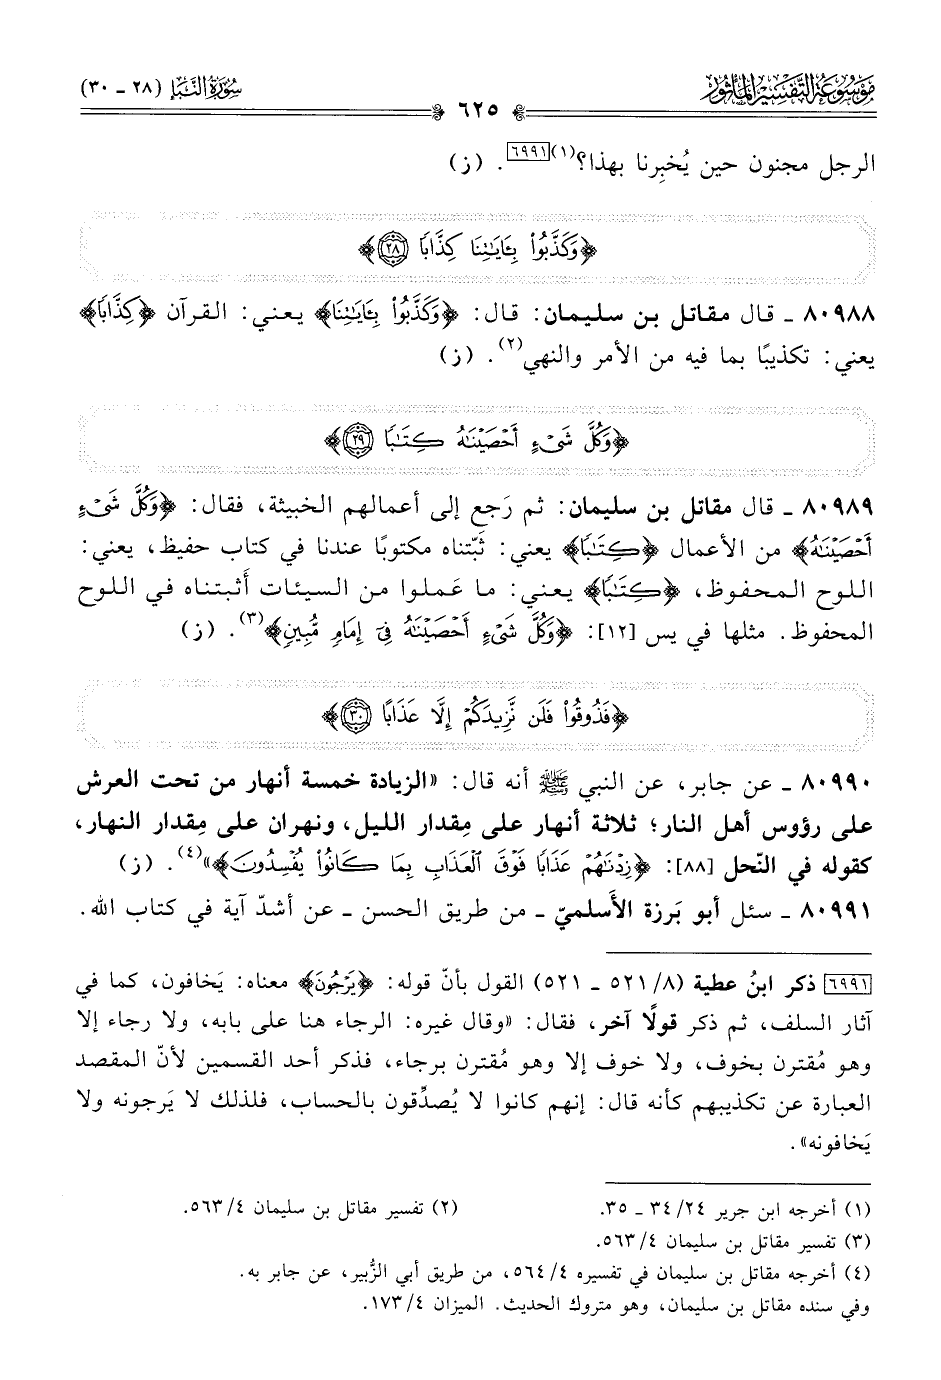 موسوعة التفسير المأثور
سورة النبأ (٢٨ - ٣٠)
٦٢٥
الرجل مجنون حين يُخبِرنا بهذا؟(١)[٦٩٩١]. (ز)
﴿وَكَذَّبُوا۟ بِـَٔايَـٰتِنَا كِذَّابًا ٢٨﴾
٨٠٩٨٨ ـ قال مقاتل بن سليمان: قال: ﴿وَكَذَّبُوا۟ بِـَٔايَـٰتِنَا﴾ يعني: القرآن ﴿كِذَّابًا﴾
يعني: تكذيبًا بما فيه من الأمر والنهي(٢). (ز)
﴿وَكُلَّ شَىْءٍ أَحْصَيْنَـٰهُ كِتَـٰبًا ٢٩﴾
٨٠٩٨٩ ـ قال مقاتل بن سليمان: ثم رَجع إلى أعمالهم الخبيثة، فقال: ﴿وَكُلَّ شَىْءٍ
أَحْصَيْنَـٰهُ﴾ من الأعمال ﴿كِتَـٰبًا﴾ يعني: ثَبّتناه مكتوبًا عندنا في كتاب حفيظ، يعني:
اللوح المحفوظ، ﴿كِتَـٰبًا﴾ يعني: ما عَملوا من السيئات أَثبتناه في اللوح
المحفوظ. مثلها في يس [١٢]: ﴿وَكُلَّ شَىْءٍ أَحْصَيْنَـٰهُ فِىٓ إِمَامٍ مُّبِينٍ﴾(٣). (ز)
﴿فَذُوقُوا۟ فَلَن نَّزِيدَكُمْ إِلَّا عَذَابًا ٣٠﴾
٨٠٩٩٠ ـ عن جابر، عن النبي ﷺ أنه قال: «الزيادة خمسة أنهار من تحت العرش
على رؤوس أهل النار؛ ثلاثة أنهار على مِقدار الليل، ونهران على مِقدار النهار،
كقوله في النّحل [٨٨]: ﴿زِدْنَـٰهُمْ عَذَابًا فَوْقَ ٱلْعَذَابِ بِمَا كَانُوا۟ يُفْسِدُونَ﴾»(٤). (ز)
٨٠٩٩١ ـ سئل أبو بَرزة الأَسلميّ ـ من طريق الحسن ـ عن أشدّ آية في كتاب الله.
[٦٩٩١] ذكر ابنُ عطية (٨/ ٥٢١ ـ ٥٢١) القول بأنّ قوله: ﴿يَرْجُونَ﴾ معناه: يَخافون، كما في
آثار السلف، ثم ذكر قولًا آخر، فقال: «وقال غيره: الرجاء هنا على بابه، ولا رجاء إلا
وهو مُقترن بخوف، ولا خوف إلا وهو مُقترن برجاء، فذكر أحد القسمين لأنّ المقصد
العبارة عن تكذيبهم كأنه قال: إنهم كانوا لا يُصدِّقون بالحساب، فلذلك لا يَرجونه ولا
يَخافونه».
(١) أخرجه ابن جرير ٢٤/ ٣٤ ـ ٣٥. (٢) تفسير مقاتل بن سليمان ٤/ ٥٦٣.
(٣) تفسير مقاتل بن سليمان ٤/ ٥٦٣.
(٤) أخرجه مقاتل بن سليمان في تفسيره ٤/ ٥٦٤، من طريق أبي الزُّبير، عن جابر به.
وفي سنده مقاتل بن سليمان، وهو متروك الحديث. الميزان ٤/ ١٧٣.